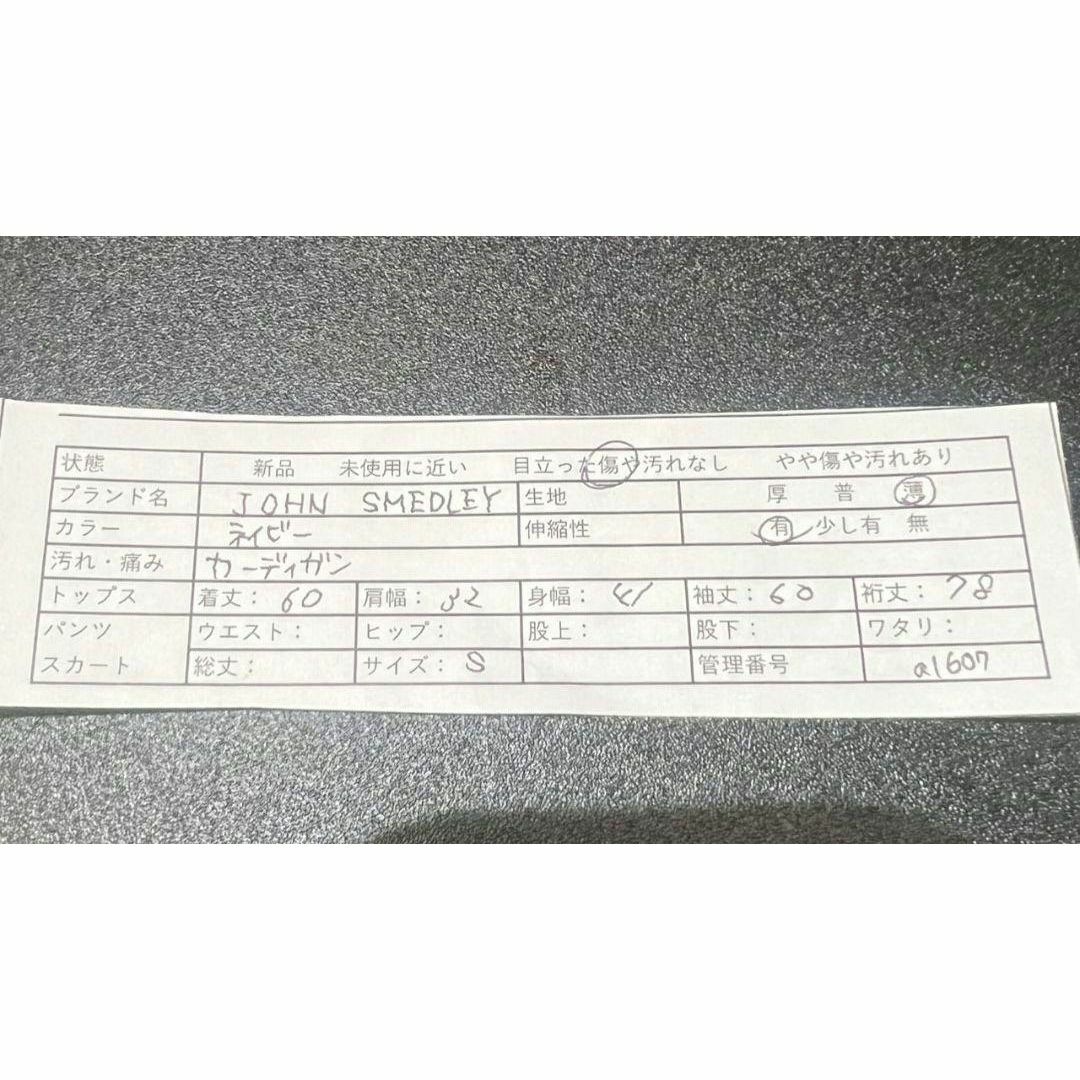 状態 新品 未使用に近い 目立った傷や汚れなし やや傷や汚れあり
ブランド名 JOHN SMEDLEY 生地 厚 普 薄
カラー ネイビー 伸縮性 有 少し有 無
汚れ・痛み カーディガン
トップス 着丈: 60 肩幅: 32 身幅: 41 袖丈: 60 裄丈: 78
パンツ ウエスト: ヒップ: 股上: 股下: ワタリ:
スカート 総丈: サイズ: S 管理番号 a1607